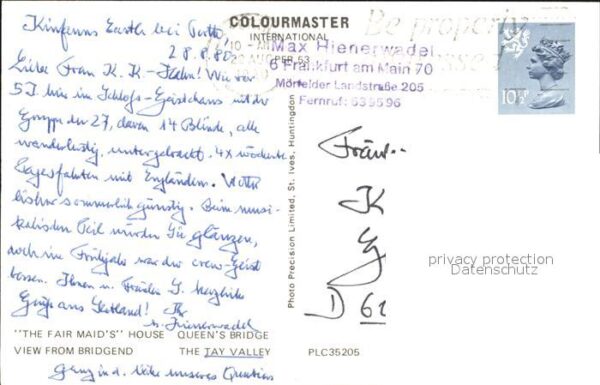 Kinfauns Castle bei Perth,
28.8.80
Liebe Frau K. K.-Hahn! Wie vor
5 J. hier im Schloß-Gästehaus mit der
Gruppe der 27, davon 14 Blinde, alle
wanderlustig, untergebracht. 4x wöchentl.
Tagesfahrten mit Engländern. Wetter
bisher sommerlich günstig. Beim musi-
kalischen Teil würden Sie glänzen,
doch im Frühjahr war der crew-Geist
besser. Ihnen u. Fräulein G. herzliche
Grüße aus Schottland! Ihr
M. Hienerwadel
"THE FAIR MAID'S" HOUSE QUEEN'S BRIDGE
VIEW FROM BRIDGEND THE TAY VALLEY PLC35205
Ganz in d. Nähe unseres Quartiers
COLOURMASTER
INTERNATIONAL
Photo Precision Limited, St. Ives, Huntingdon
Be properly
10
Max Hienerwadel
6 Frankfurt am Main 70
Mörfelder Landstraße 205
Fernruf: 63 55 96
10½P
K
G
D 62
privacy protection
Datenschutz